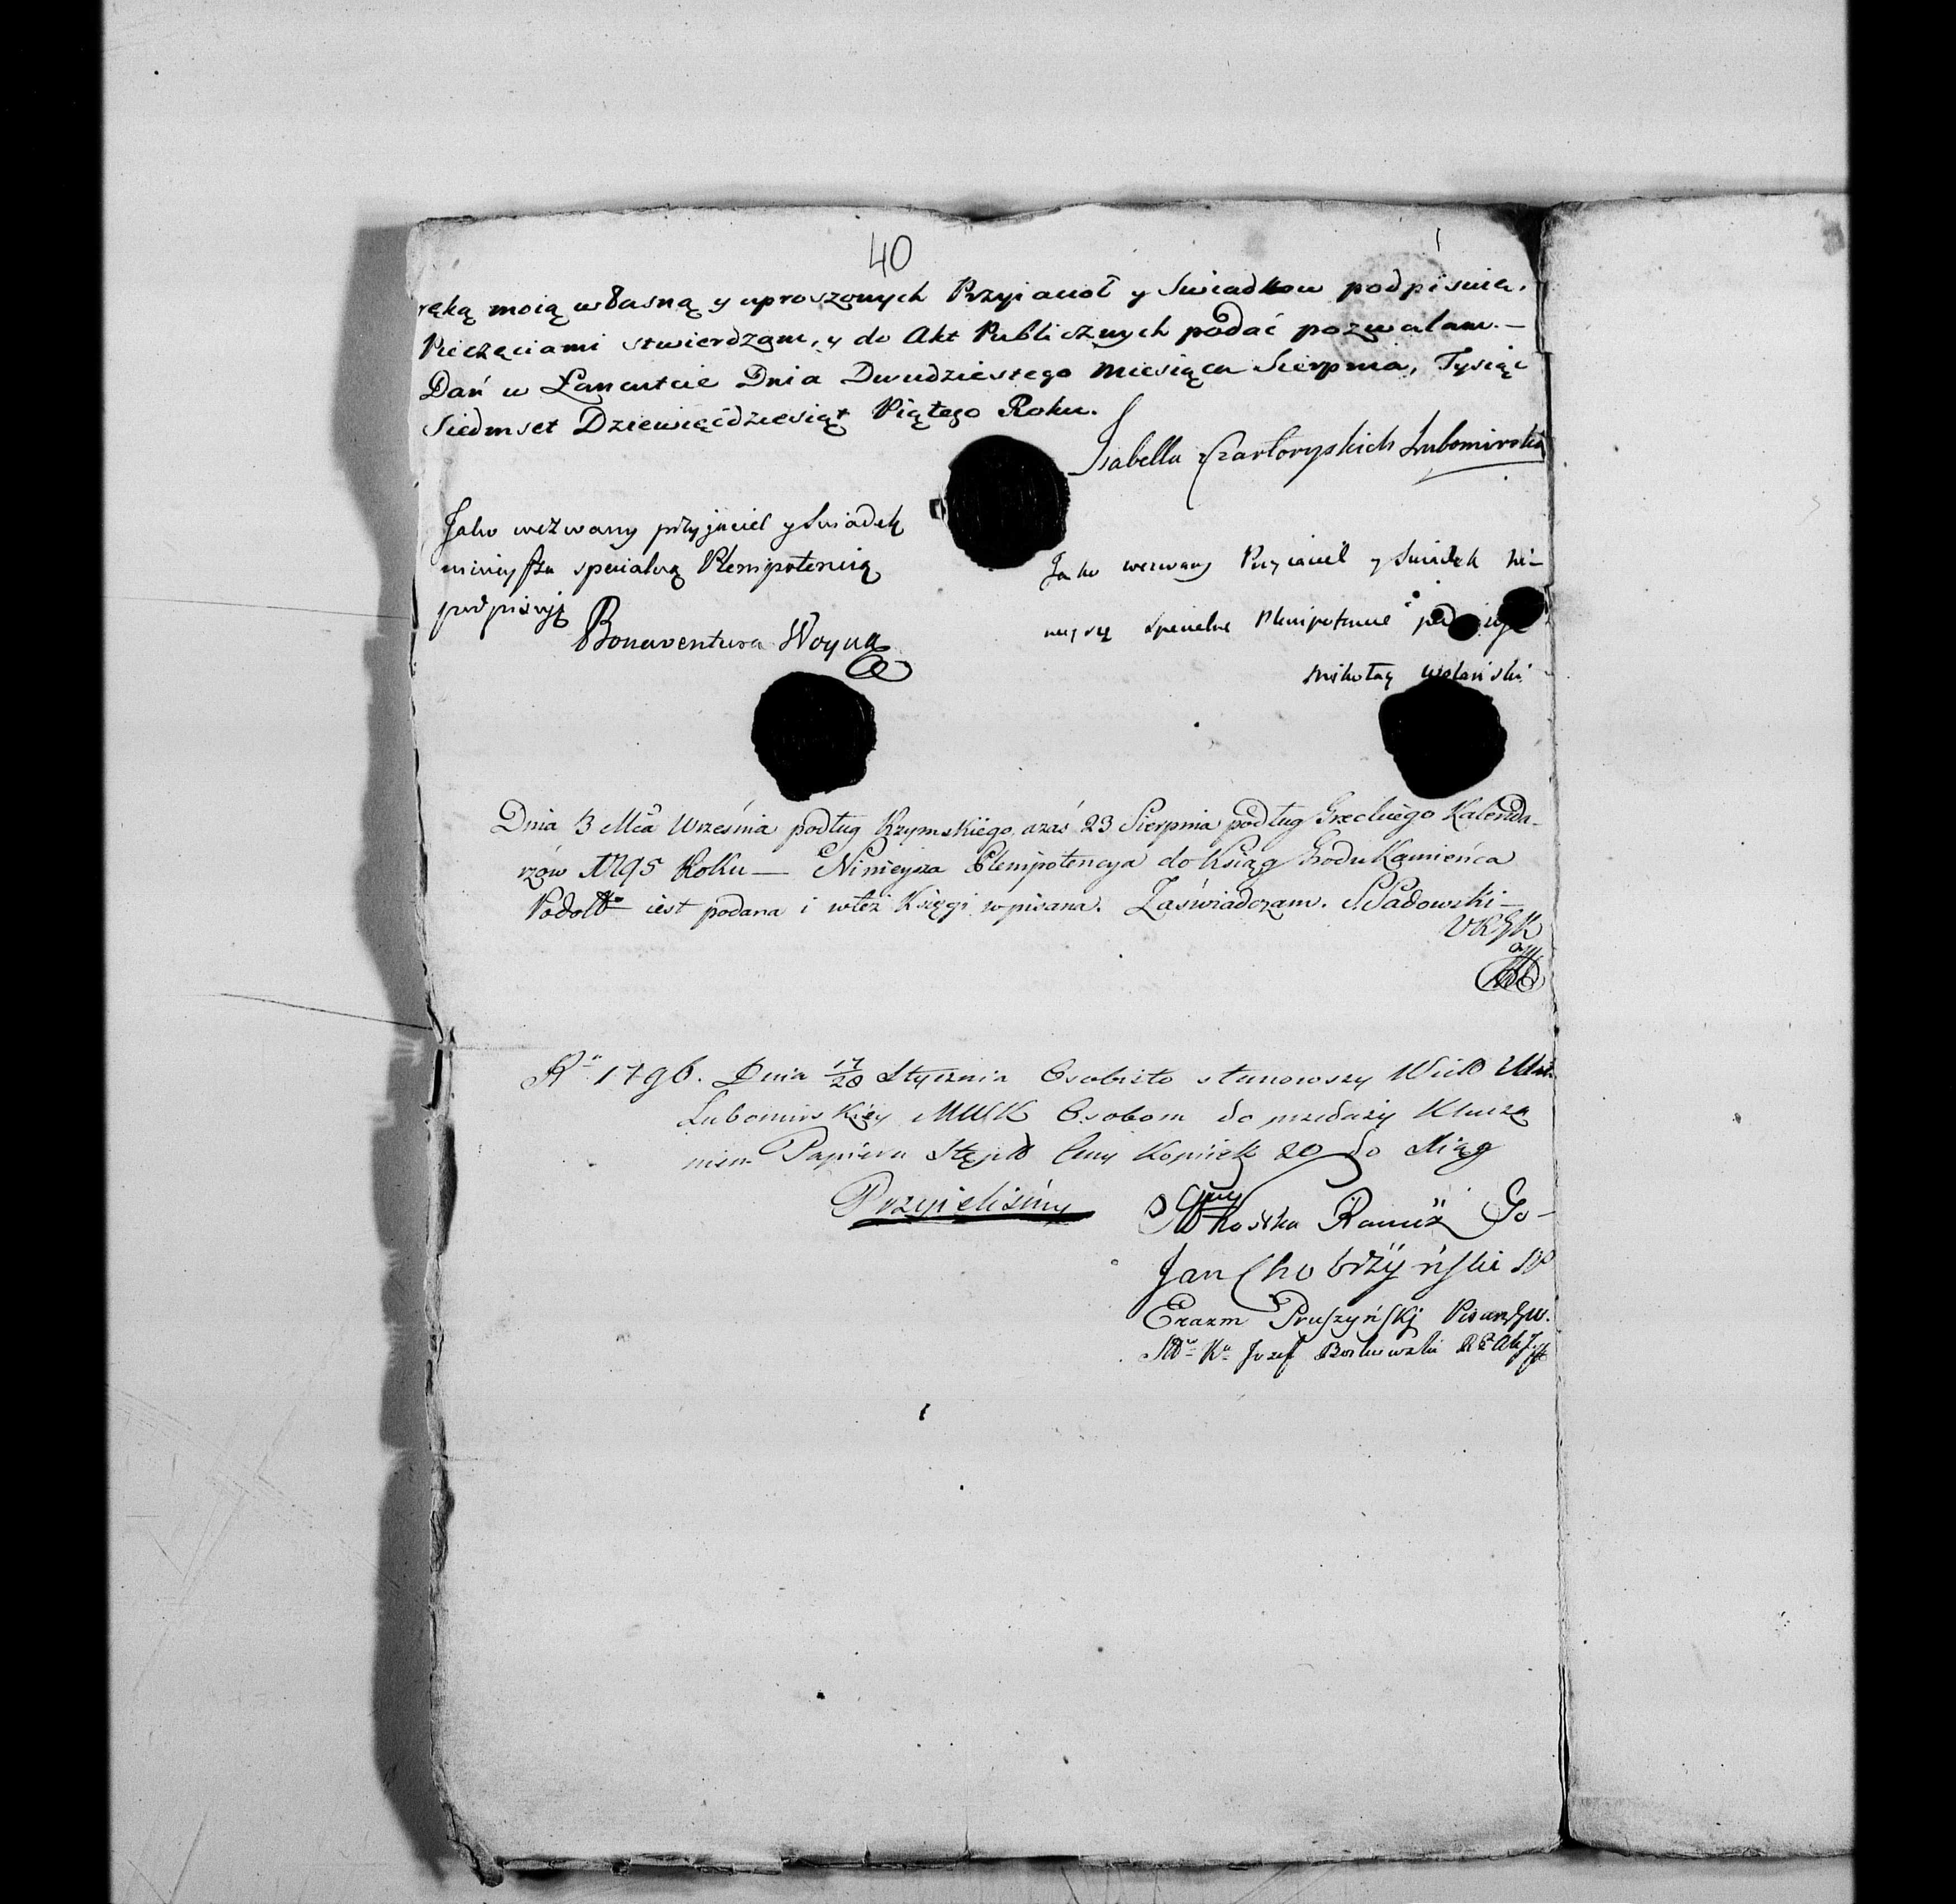 40
ręką moią własną y uproszonych Przyiacioł y Swiadkow podpisnią,
Pieczęciami stwierdzam, y do Akt Publicznych podać pozwalam. –
Dań w Łancutcie Dnia Dwudziestego Miesiąca Sierpnia, Tysiąc
Siedmset Dziewięćdziesiąt Piątego Roku.
Isabella Czartoryskich Lubomirska
Jako wezwany przyjaciel y Swiadek
ninieyszą specialną Plenipotencią
podpisuję
Bonaventura Woyna
Jako wezwany Przyiaciel y Swiadek ni-
nieyszą specialną Plenipotencie
Mikołay Wolański
Dnia 3 Mca Września podług Rzymskiego, a zaś 23 Sierpnia podług Greckiego Kalenda-
rzów 1795 Roku — Ninieysza Plenipotencya do Ksiąg Grodu Kamieńca
Podolgo iest podana i w też Księgi wpisana. Zaświadczam. Sadowski –
VRGK
Ru 1796. Dnia 17/28 Stycznia Osobiście stanowszy
Lubomirskiey MWK Osobom do przedaży Klucza
Papieru Stępl Ceny Kopiiek 20 do Xiąg
Przyieliśmy
Kostka
Jan
Erazm Pruszyński
Jozef